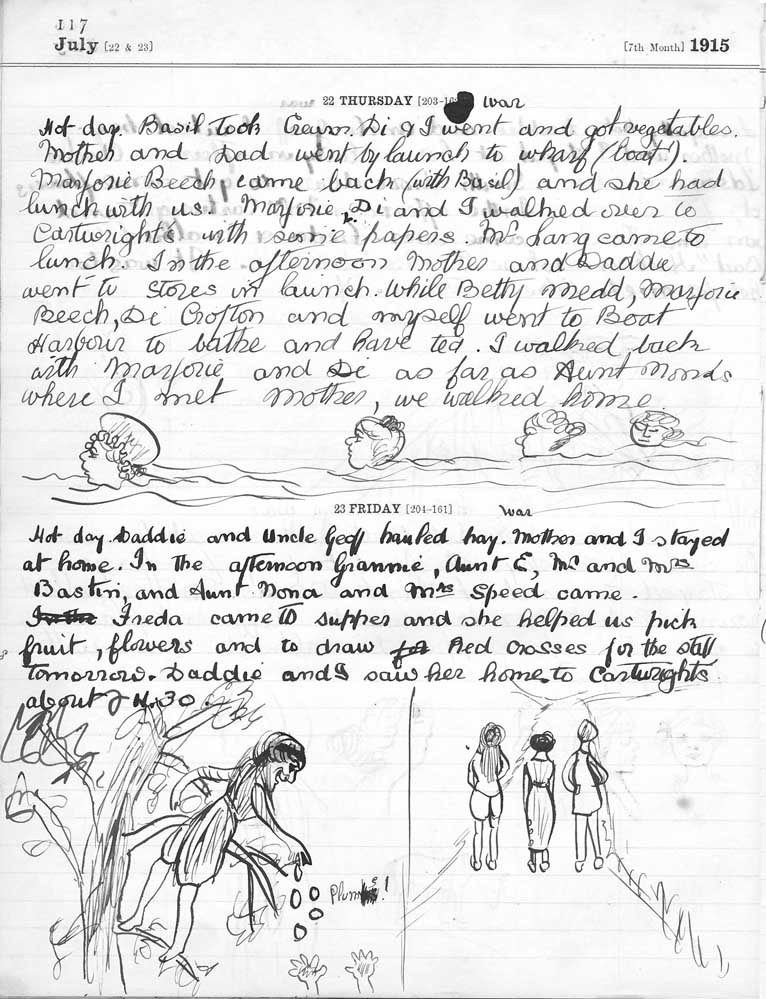 117
July [22 & 23] [7th Month] 1915
22 THURSDAY [203-16 war
Hot day. Basil took Cream. Di & I went and got vegetables.
Mother and Dad went by launch to wharf (boat).
Marjorie Beech, came back (with Basil) and she had
lunch with us. Marjorie, Di and I walked over to
Cartwright's with some papers. Mr Lang came to
lunch. In the afternoon Mother and Daddie
went to Stores in launch. While Betty Medd, Marjorie
Beech, Di Crofton and myself went to Boat
Harbour to bathe and have tea. I walked back
with Marjorie and Di as far as Aunt Nonds
where I met Mother, we walked home
23 FRIDAY [204-161] war
Hot day. Daddie and Uncle Geoff hauled hay. Mother and I stayed
at home. In the afternoon Grannie, Aunt E, Mr and Mrs
Bastin, and Aunt Nona and Mrs Speed came.
In the Freda came to supper and she helped us pick
fruit, flowers and to draw for Red Crosses for the stall
tomorrow. Daddie and I saw her home to Cartwrights
about 11.30.
Plums!